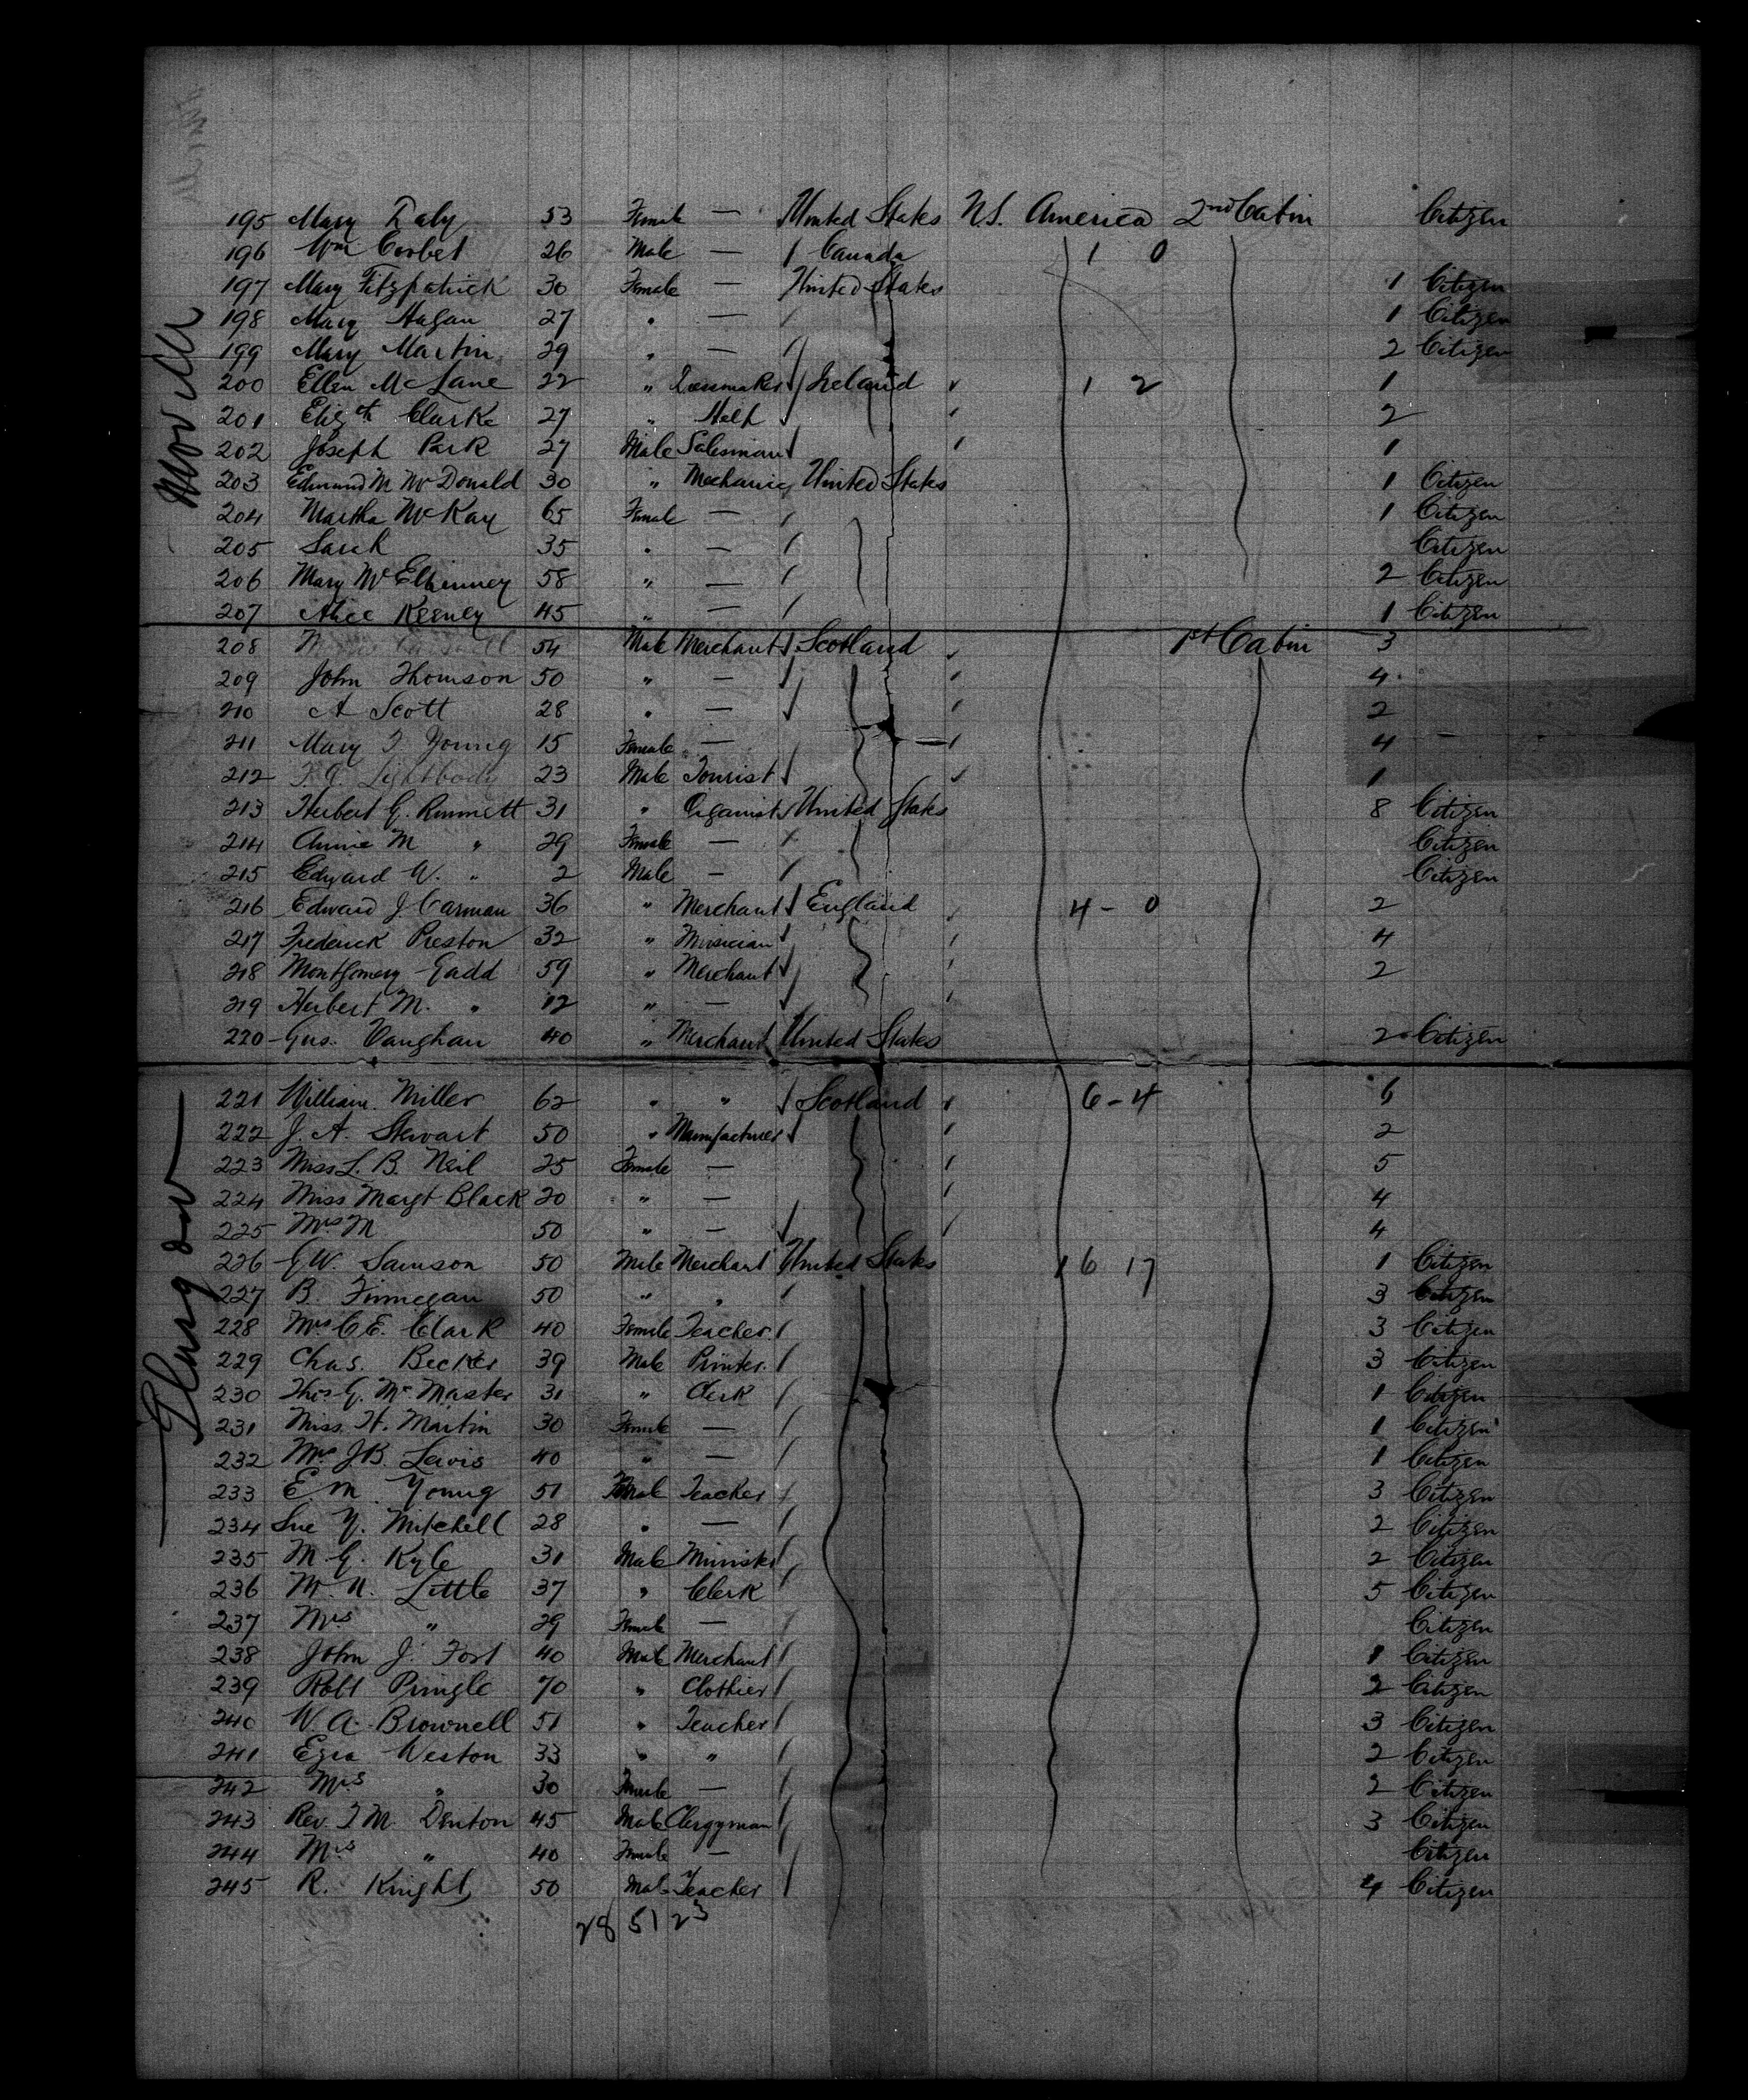 Moville
195 Mary Daly 53 Female — United States U.S. America 2nd Cabin Citizen
196 Wm Corbet 26 Male — Canada 1 0
197 Mary Fitzpatrick 30 Female — United States 1 Citizen
198 Mary Hagan 27 " — 1 Citizen
199 Mary Martin 29 " — 2 Citizen
200 Ellen McLane 22 " Dressmaker Ireland 1 2 1
201 Elizth Clarke 27 " Help 2
202 Joseph Park 27 Male Salesman 1
203 Edmund M McDonald 30 " Mechanic United States 1 Citizen
204 Martha McKay 65 Female — 1 Citizen
205 Sarah 35 " — Citizen
206 Mary McElhinney 58 " — 2 Citizen
207 Alice Keeney 45 " — 1 Citizen
208 54 Male Merchant Scotland 1st Cabin 3
209 John Thomson 50 " — 4
210 A Scott 28 " — 2
211 Mary T Young 15 Female — 4
212 Lightbody 23 Male Tourist 1
213 Herbert G. 31 " Organist United States 8 Citizen
214 Annie M " 29 Female — Citizen
215 Edward W. " 2 Male — Citizen
216 Edward J Carman 36 " Merchant England 4 - 0 2
217 Frederick Preston 32 " Musician 4
218 Montgomery Gadd 59 " Merchant 2
219 Herbert M. " 12 " —
220 Gus. Vaughan 40 " Merchant United States 2 Citizen
Glasgow
221 William Miller 62 " " Scotland 6 - 4 6
222 J. A. Stewart 50 " Manufacturer 2
223 Miss L. B. Neil 25 Female — 5
224 Miss Margt Black 20 " — 4
225 Mrs M 50 " — 4
226 G W. Samson 50 Male Merchant United States 16 17 1 Citizen
227 B. Finnegan 50 " " 3 Citizen
228 Mrs C E. Clark 40 Female Teacher 3 Citizen
229 Chas. Becker 39 Male Printer 3 Citizen
230 Thos G. McMaster 31 " Clerk 1 Citizen
231 Miss H. Martin 30 Female — 1 Citizen
232 Mrs J B. Lewis 40 " — 1 Citizen
233 E. M. Young 51 Female Teacher 3 Citizen
234 Sue Y. Mitchell 28 " — 2 Citizen
235 M. G. Kyle 31 Male Minister 2 Citizen
236 W. N. Little 37 " Clerk 5 Citizen
237 Mrs " 29 Female — Citizen
238 John J. Fort 40 Male Merchant 1 Citizen
239 Robt Pringle 70 " Clothier 2 Citizen
240 W. A. Brownell 51 " Teacher 3 Citizen
241 Ezra Weston 33 " " 2 Citizen
242 Mrs " 30 Female — 2 Citizen
243 Rev. T M. Denton 45 Male Clergyman 3 Citizen
244 Mrs " 40 Female — Citizen
245 R. Knight 50 Male Teacher 4 Citizen
28 51 23